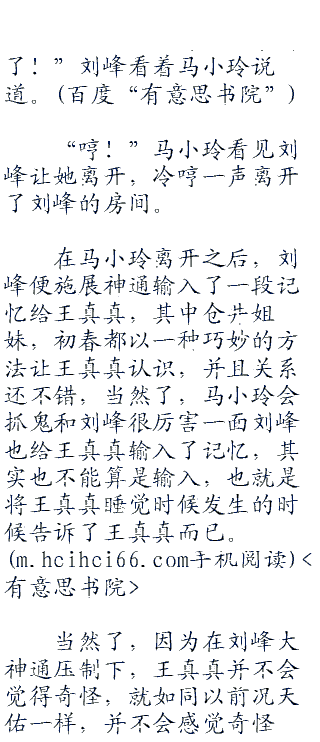 了！”刘峰看着马小玲说
道。(百度“有意思书院”)
“哼！”马小玲看见刘
峰让她离开，冷哼一声离开
了刘峰的房间。
在马小玲离开之后，刘
峰便施展神通输入了一段记
忆给王真真，其中仓井姐
妹，初春都以一种巧妙的方
法让王真真认识，并且关系
还不错，当然了，马小玲会
抓鬼和刘峰很厉害一面刘峰
也给王真真输入了记忆，其
实也不能算是输入，也就是
将王真真睡觉时候发生的时
候告诉了王真真而已。
(m.hcihci66.com手机阅读)<
有意思书院>
当然了，因为在刘峰大
神通压制下，王真真并不会
觉得奇怪，就如同以前况天
佑一样，并不会感觉奇怪